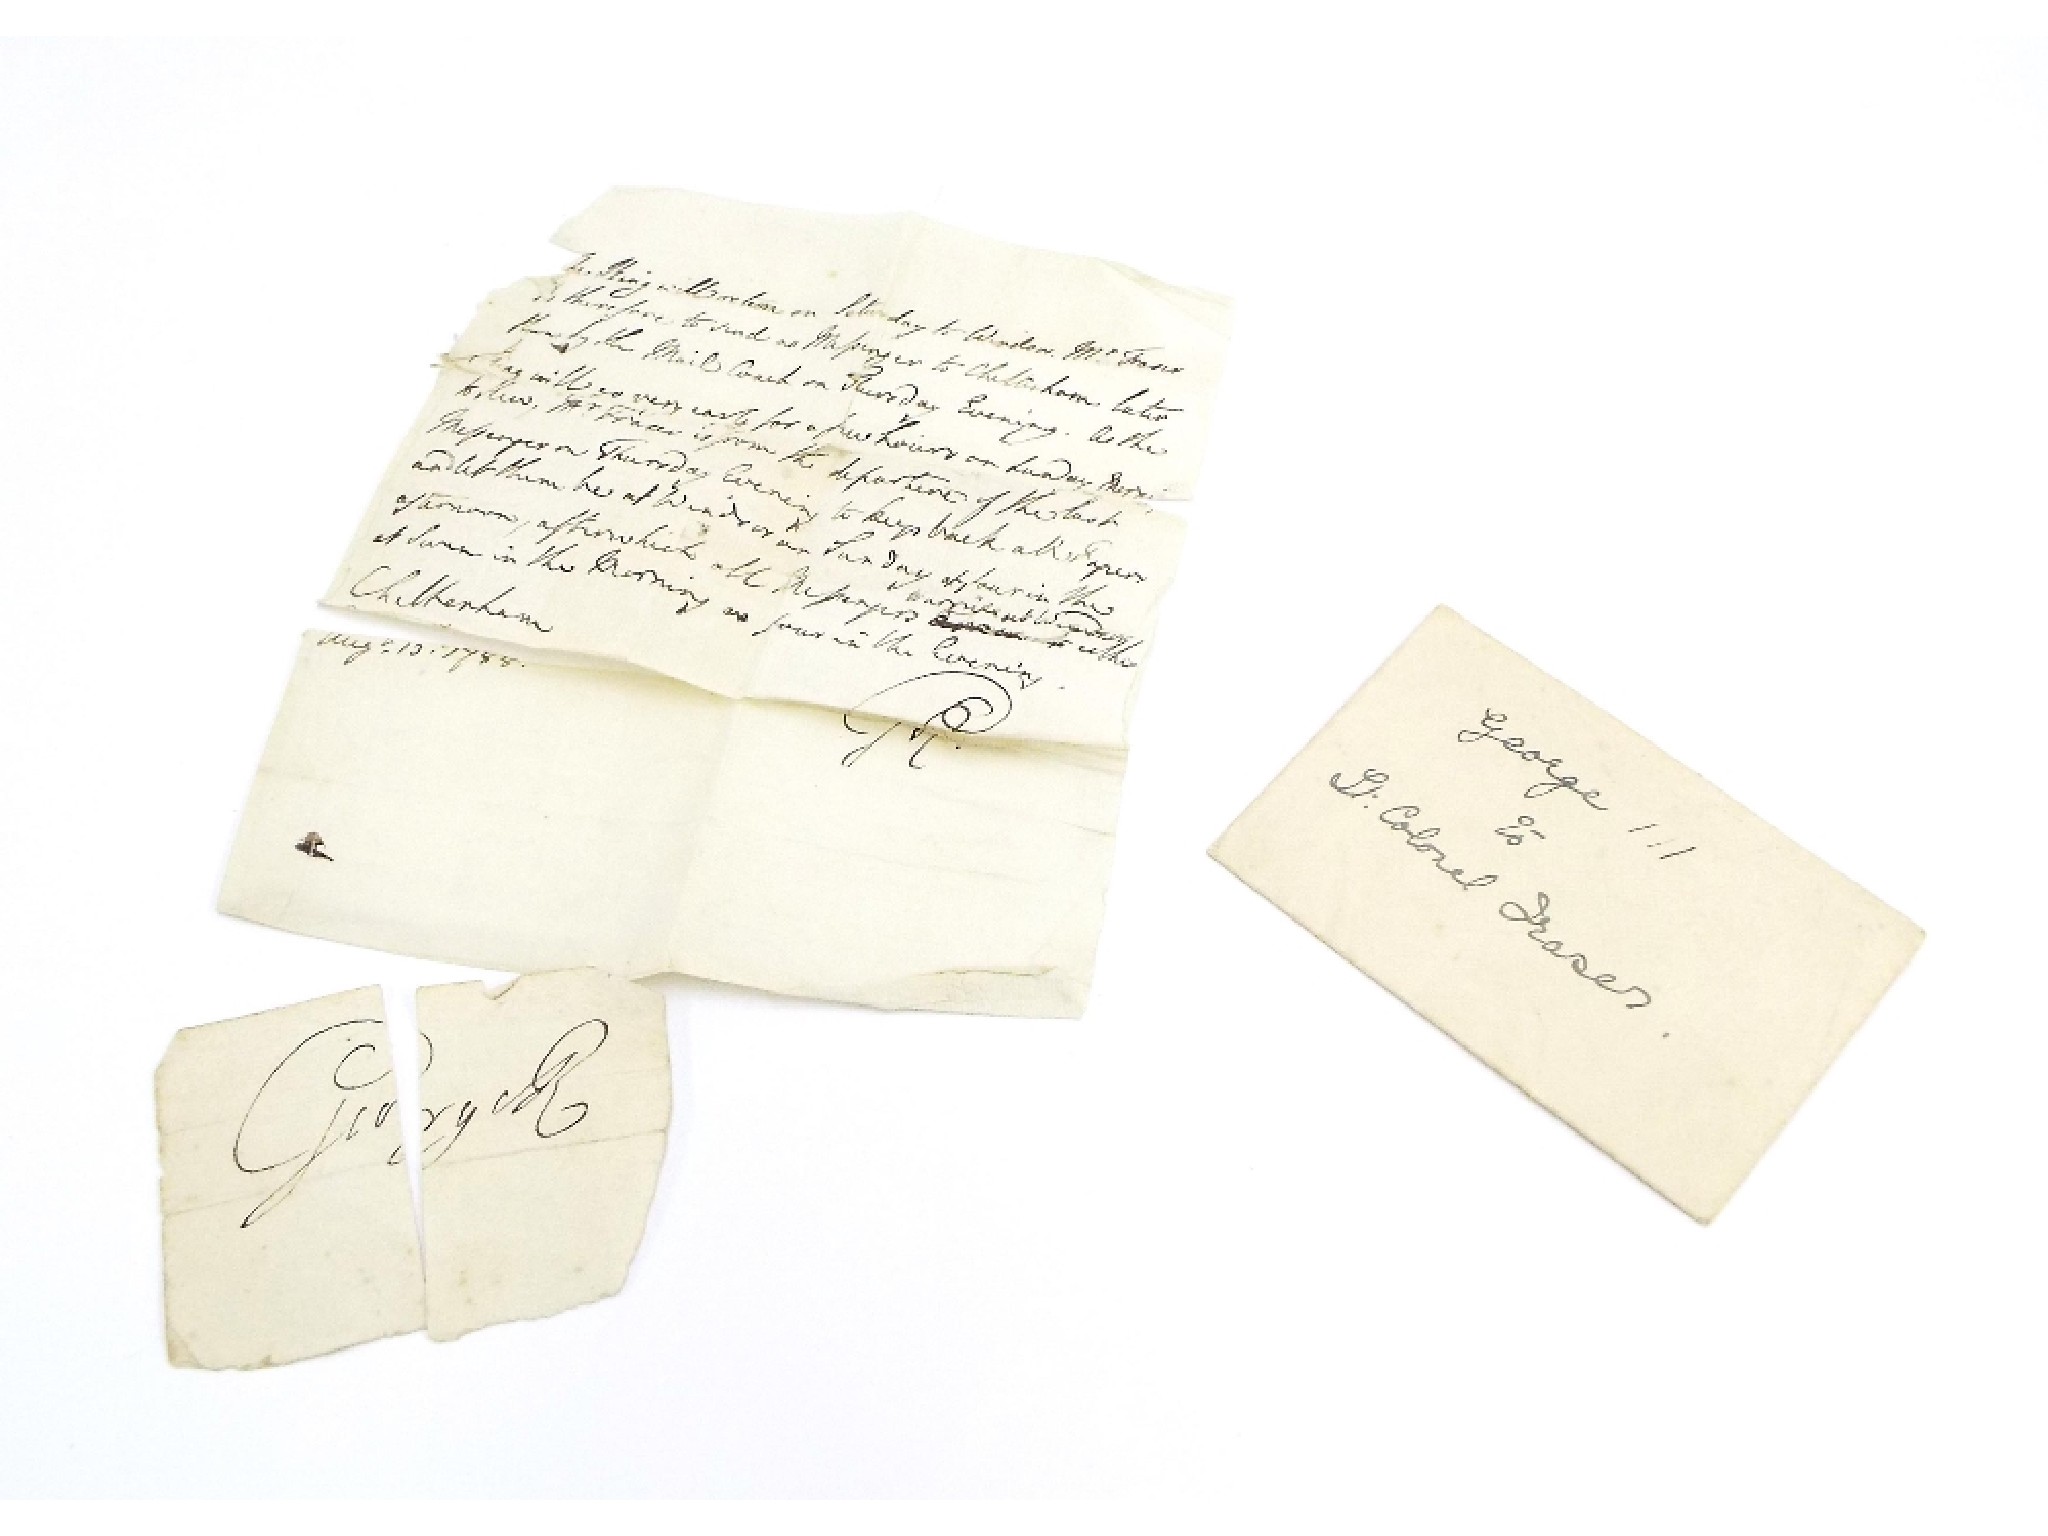 King will return on Saturday to Windsor. Mr. Fraser
is therefore to send no Messenger to Cheltenham later
than by the Mail Coach on Thursday Evening. As the
King will go very early for a few hours on Sunday Morn:
to Kew, Mr. Fraser is from the departure of the last
Messenger on Thursday Evening to keep back all Papers
and let them be at Windsor on Sunday at four in the
afternoon, after which all Messengers
at Seven in the Morning or four in the Evening.
Cheltenham
Augt. 13. 1788.
GR.
George R
George III
to
Lt. Colonel Fraser.